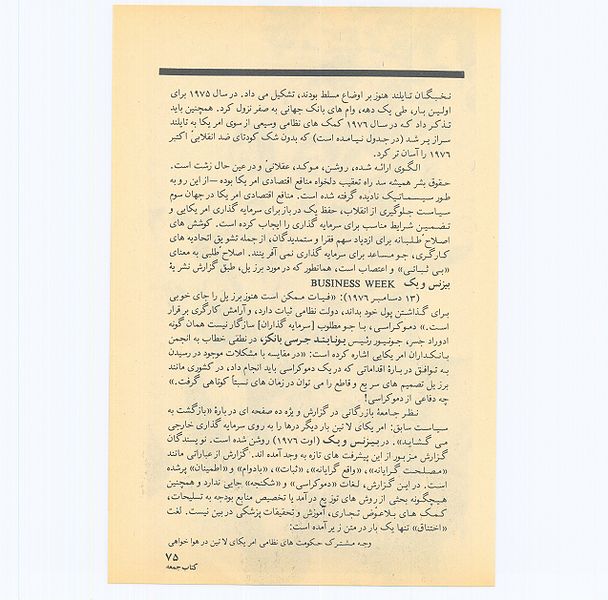 نخبگان تایلند هنوز بر اوضاع مسلط بودند، تشکیل می داد. در سال ۱۹۷۵ برای
اولین بار، طی یک دهه، وام های بانک جهانی به صفر نزول کرد. همچنین باید
تذکر داد که در سال ۱۹۷۶ کمک های نظامی وسیعی از سوی امریکا به تایلند
سرازیر شد (در جدول نیامده است) که بدون شک کودتای ضد انقلابی اکتبر
۱۹۷۶ را آسان تر کرد.
الگوی ارائه شده، روشن، موکد، عقلانی و در عین حال زشت است.
حقوق بشر همیشه سد راه تعقیب دلخواه منافع اقتصادی امریکا بوده — از این رو به
طور سیستماتیک نادیده گرفته شده است. منافع اقتصادی امریکا در جهان سوم
سیاست جلوگیری از انقلاب، حفظ یک در باز برای سرمایه گذاری امریکایی و
تضمین شرایط مناسب برای سرمایه گذاری را ایجاب کرده است. کوشش های
اصلاح طلبانه برای ازدیاد سهم فقرا و ستمدیدگان، از جمله تشویق اتحادیه های
کارگری، جو مساعد برای سرمایه گذاری نمی آفرینند. اصلاح طلبی به معنای
«بی ثباتی» و اعتصاب است، همانطور که در مورد برزیل، طبق گزارش نشریهٔ
بیزنس ویک BUSINESS WEEK
(۱۳ دسامبر ۱۹۷۶): «فیات ممکن است هنوز برزیل را جای خوبی
برای گذاشتن پول خود بداند، دولت نظامی ثبات دارد، و آرامش کارگری برقرار
است.» دموکراسی، با جو مطلوب [سرمایه گذاران] سازگار نیست همان گونه
ادوارد جسر، جونیور رئیس یونایتد جرسی بانکز، در نطقی خطاب به انجمن
بانکداران امریکایی اشاره کرده است: «در مقایسه با مشکلات موجود در رسیدن
به توافق در بارهٔ اقداماتی که در یک دموکراسی باید انجام داد، در کشوری مانند
برزیل تصمیم های سریع و قاطع را می توان در زمان های نسبتاً کوتاهی گرفت.»
چه دفاعی از دموکراسی!
نظر جامعهٔ بازرگانی در گزارش ویژه ده صفحه ای در بارهٔ «بازگشت به
سیاست سابق: امریکای لاتین بار دیگر درها را به روی سرمایه گذاری خارجی
می گشاید». در بیزنس ویک (اوت ۱۹۷۶) روشن شده است. نویسندگان
گزارش مزبور از این پیشرفت های تازه به وجد آمده اند. گزارش از عباراتی مانند
«مصلحت گرایانه»، «واقع گرایانه»، «ثبات»، «بادوام» و «اطمینان» پر شده
است. در این گزارش، لغات «دموکراسی» و «شکنجه» جایی ندارد و همچنین
هیچگونه بحثی از روش های توزیع درآمد یا تخصیص منابع بودجه به تسلیحات،
کمک های بلاعوض تجاری، آموزش و تحقیقات پزشکی در بین نیست. لغت
«اختناق» تنها یک بار در متن زیر آمده است:
وجه مشترک حکومت های نظامی امریکای لاتین در هواخواهی
۷۵
کتاب جمعه